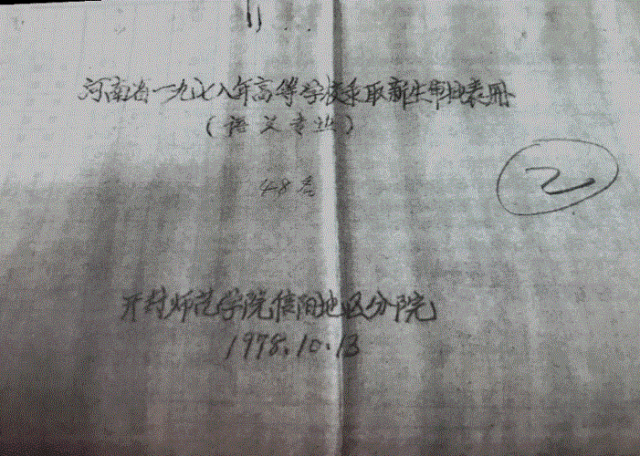 河南省一九七八年高等学校录取新生审批表册
（语文专业）
2
48名
开封师范学院信阳地区分院
1978.10.13